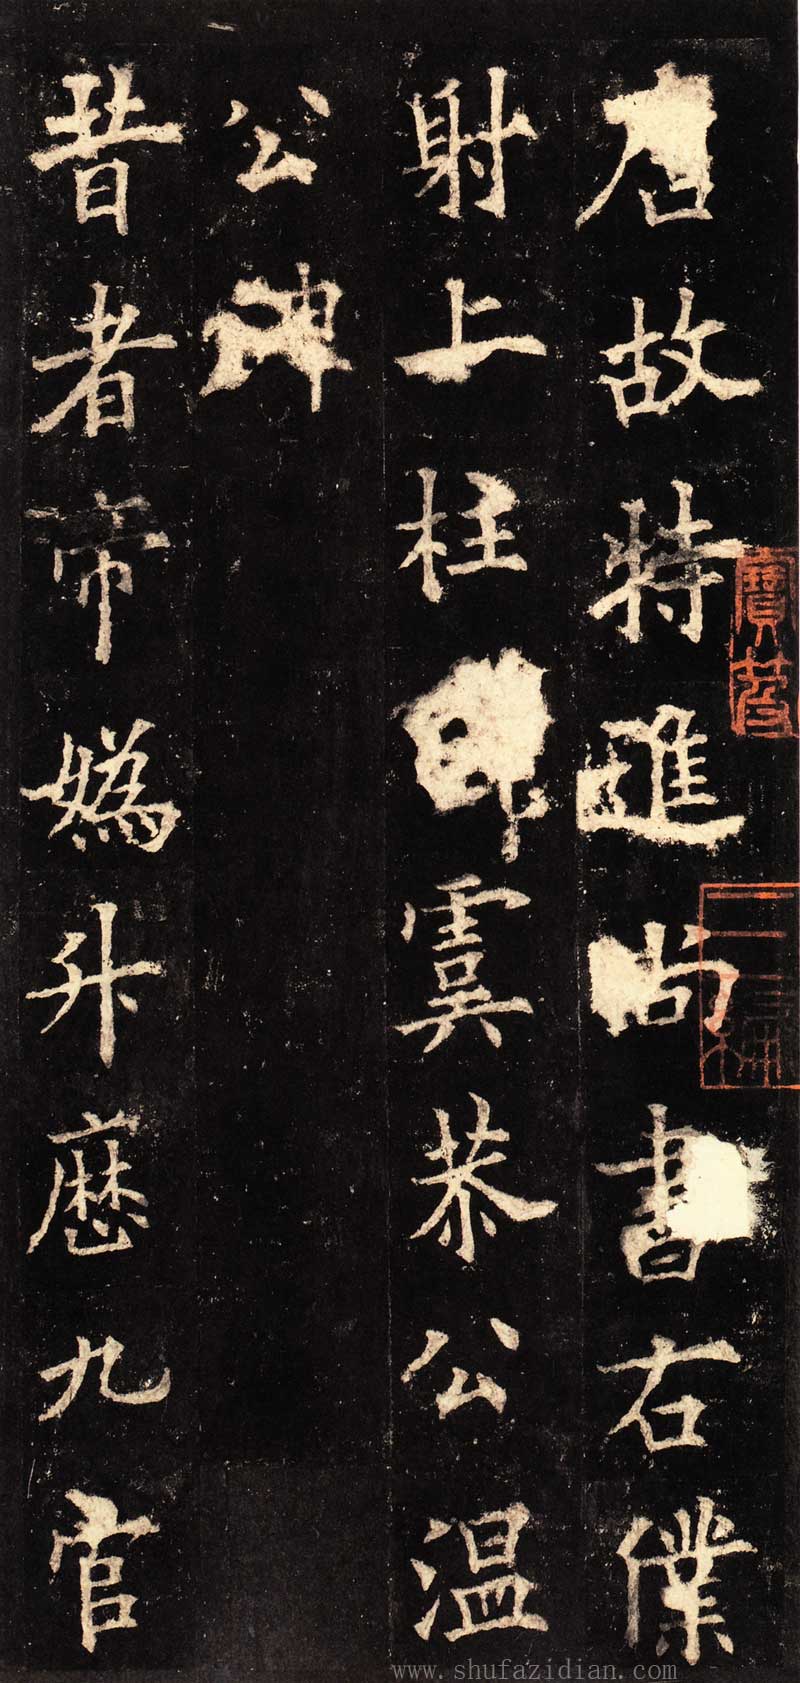 唐故特進尚書右僕
射上柱國虞恭公温
公碑
昔者帝媯升歷九官
www.shufazidian.com